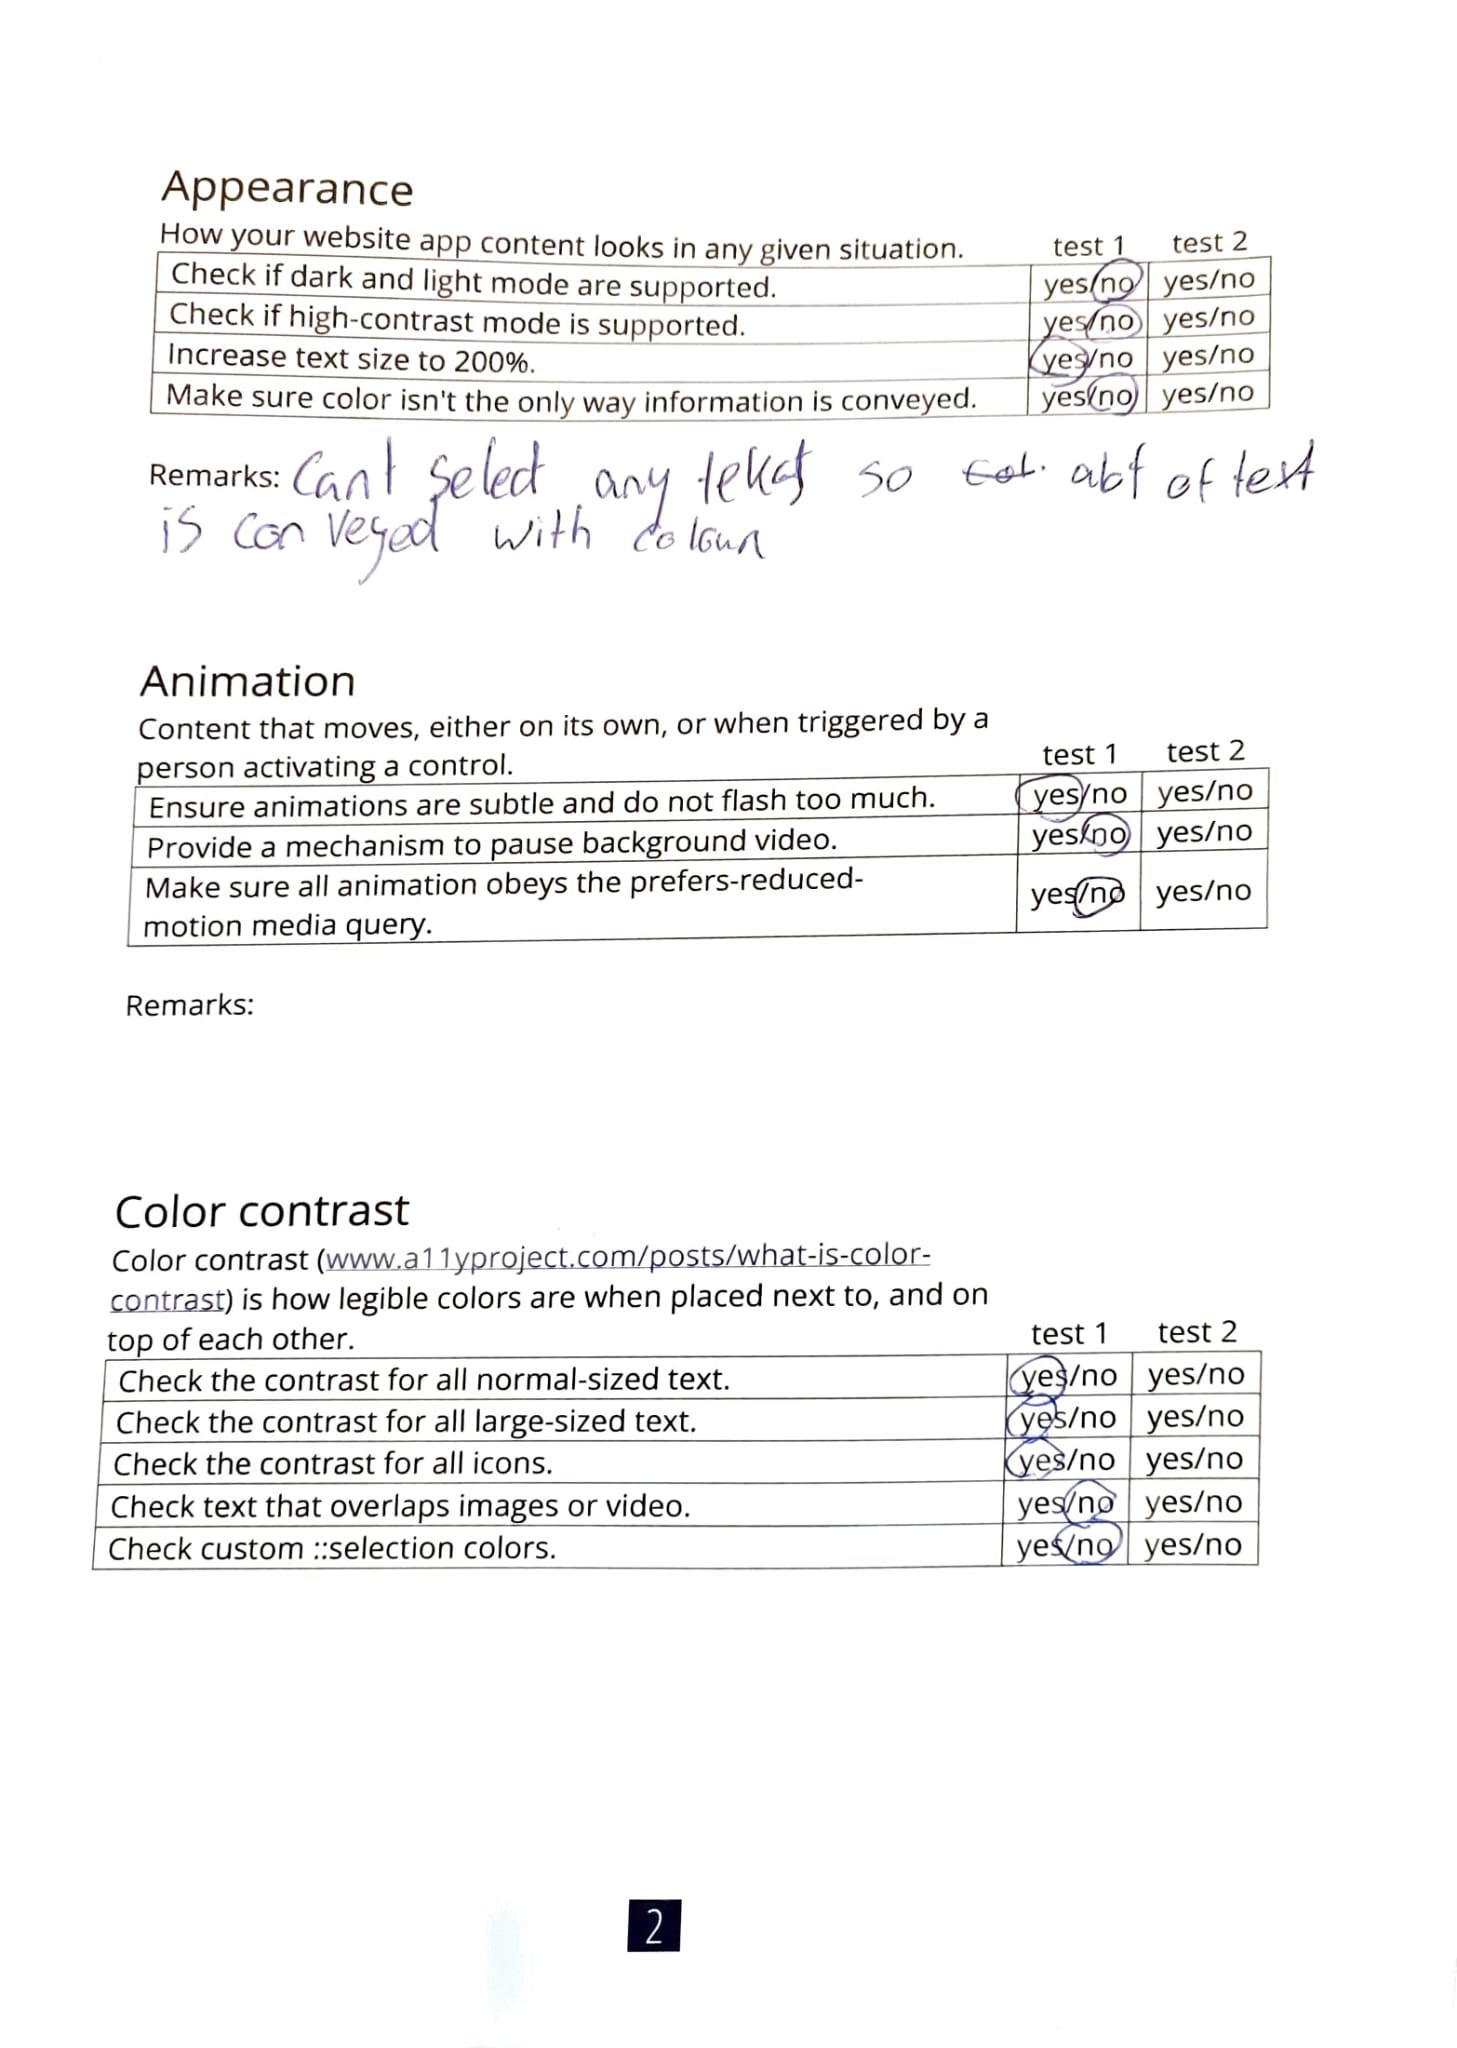 Appearance
How your website app content looks in any given situation. test 1 test 2
Check if dark and light mode are supported. yes/no yes/no
Check if high-contrast mode is supported. yes/no yes/no
Increase text size to 200%. yes/no yes/no
Make sure color isn't the only way information is conveyed. yes/no yes/no
Remarks: Cant select any so of text
is conveyed with colour
Animation
Content that moves, either on its own, or when triggered by a
person activating a control. test 1 test 2
Ensure animations are subtle and do not flash too much. yes/no yes/no
Provide a mechanism to pause background video. yes/no yes/no
Make sure all animation obeys the prefers-reduced-
motion media query. yes/no yes/no
Remarks:
Color contrast
Color contrast (www.a11yproject.com/posts/what-is-color-
contrast) is how legible colors are when placed next to, and on
top of each other. test 1 test 2
Check the contrast for all normal-sized text. yes/no yes/no
Check the contrast for all large-sized text. yes/no yes/no
Check the contrast for all icons. yes/no yes/no
Check text that overlaps images or video. yes/no yes/no
Check custom ::selection colors. yes/no yes/no
2